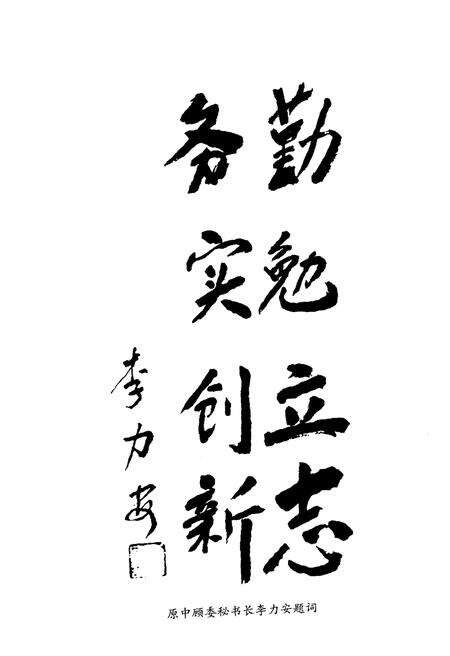 勤勉立志
务实创新
李力安
原中顾委秘书长李力安题词